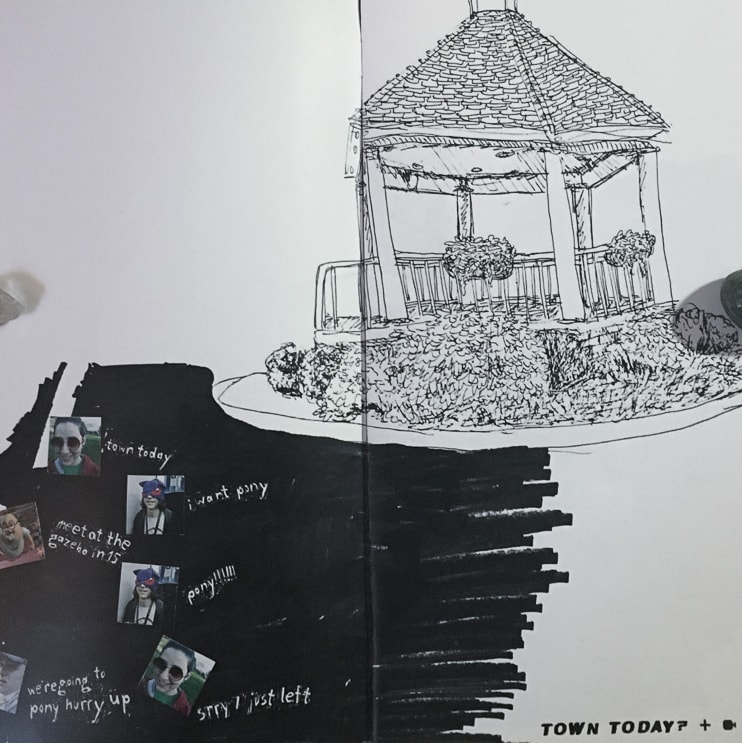 town today
i want pony
meet at the
gazebo in 15
pony!!!!!!
we're going to
pony hurry up
srry I just left
TOWN TODAY? +